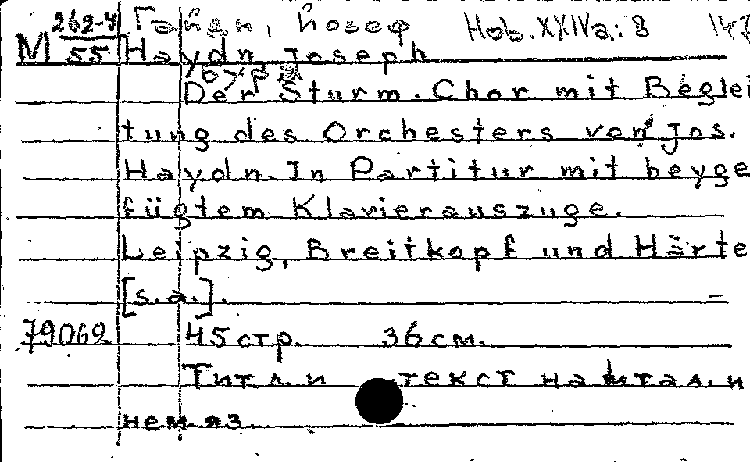 262-4 Гайдн, Йозеф Hob. XXIVa:8 147
M 55 Haydn, Joseph
Буря
Der Sturm. Chor mit Beglei
tung des Orchesters von Jos.
Haydn. In Partitur mit beyge
fügtem Klavierauszuge.
Leipzig, Breitkopf und Härte
[s.a.].
79062 45 стр. 36 см.
Титл. и текст на итал. и
нем. яз.